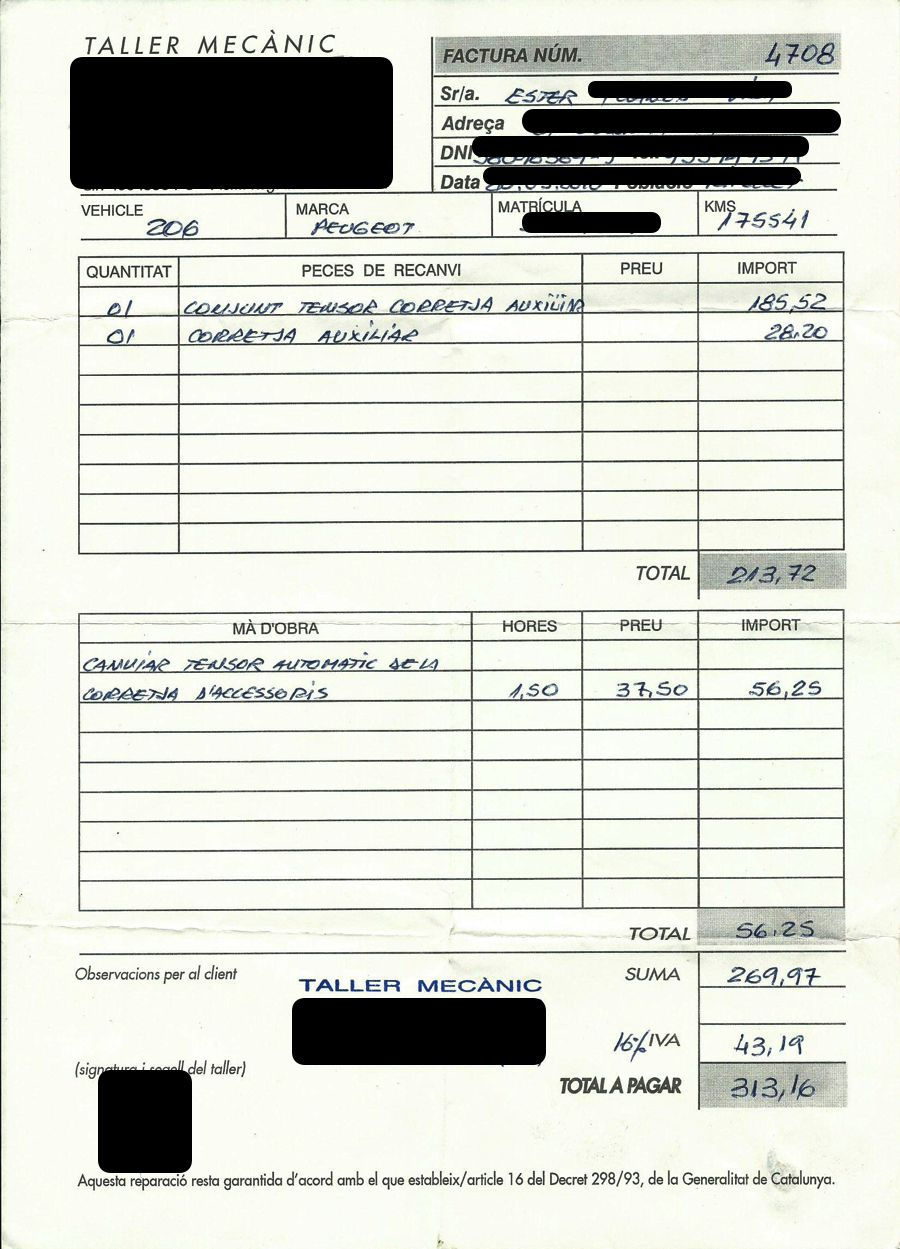 TALLER MECÀNIC
FACTURA NÚM. 4708
Sr/a. ESTER
Adreça
DNI
Data
VEHICLE 206
MARCA PEUGEOT
MATRÍCULA
KMS 175541
QUANTITAT PECES DE RECANVI PREU IMPORT
01 CONJUNT TENSOR CORRETJA AUXILIAR 185,52
01 CORRETJA AUXILIAR 28.20
TOTAL 213,72
MÀ D'OBRA HORES PREU IMPORT
CANVIAR TENSOR AUTOMATIC DE LA
CORRETJA D'ACCESSORIS 1,50 37,50 56,25
TOTAL 56.25
Observacions per al client
SUMA 269,97
TALLER MECÀNIC
16% IVA 43,19
(signatura i segell del taller)
TOTAL A PAGAR 313,16
Aquesta reparació resta garantida d'acord amb el que estableix/article 16 del Decret 298/93, de la Generalitat de Catalunya.